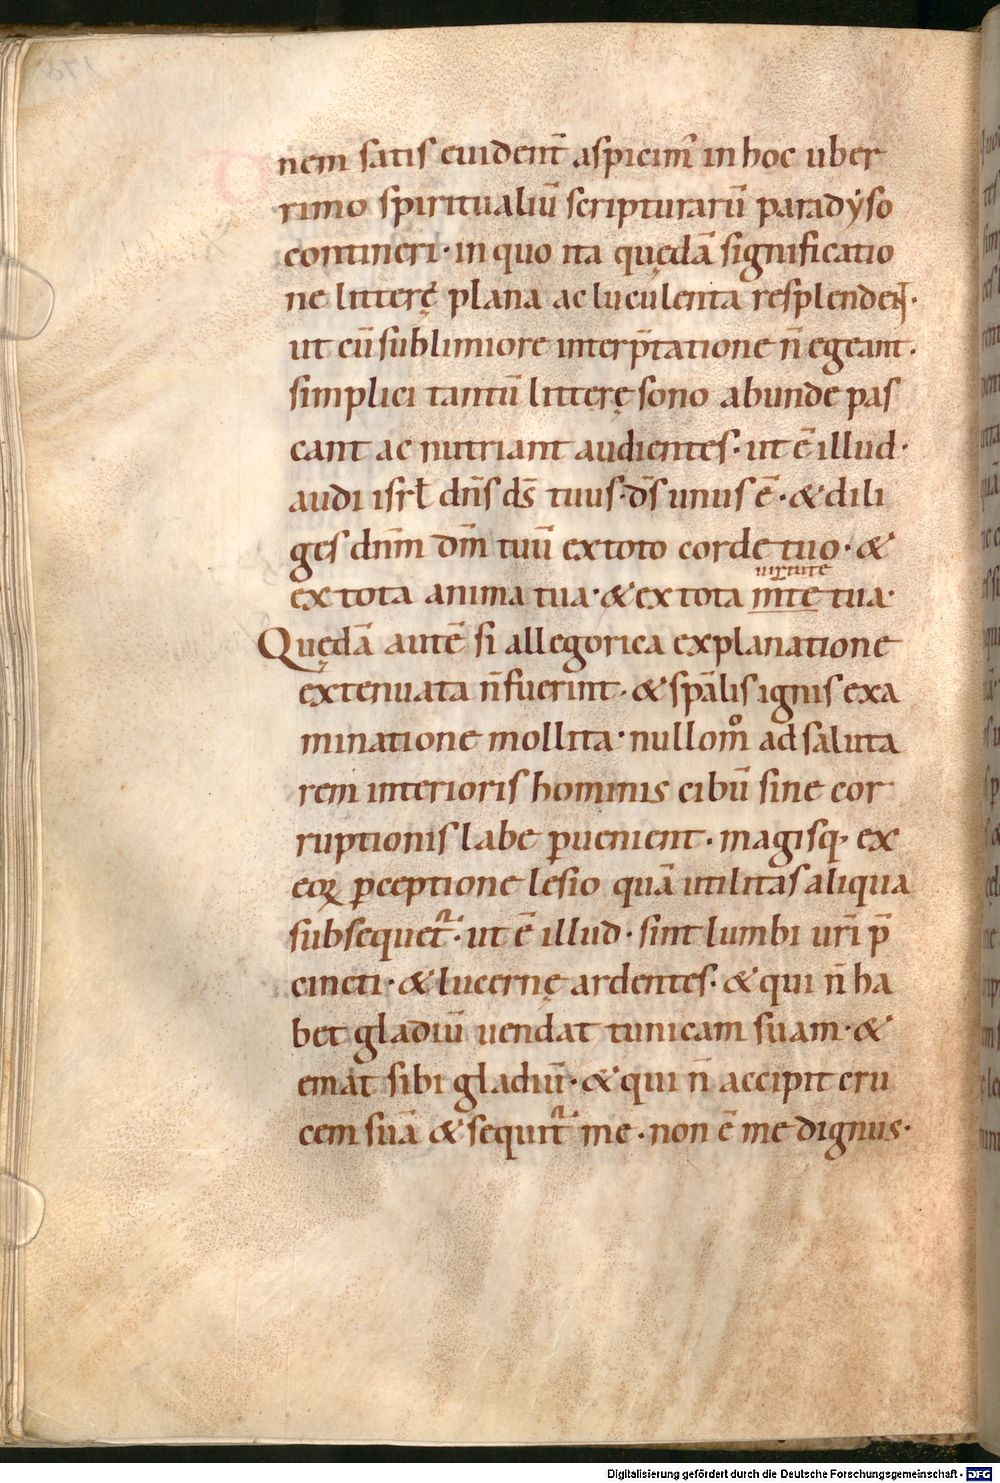 nem satis euident̄ aspicim᾽ in hoc uber
rimo spiritualiū scripturarū paradẏso
contineri · in quo ita quędā significatio
ne litterę plana ac luculenta resplendent ·
ut eū sublimiore interp̄tatione n̄ egeant ·
simplici tantū litterę sono abunde pas
cant ac nutriant audientes · ut ē illud ·
audi isrł dn̄s ds̄ tuus · dn̄s unus ē · & dili
ges dnm̄ dm̄ tuū ex toto corde tuo · &
uirtute
ex tota anima tua · & ex tota mte tua ·
Quędā autē si allegorica explanatione
extenuata n̄ fuerint · & sp̄alis ignis exa
minatione mollita · nullom̊ ad saluta
rem interioris hominis cibū sine cor
ruptionis labe ꝑuenient · magisq; ex
eoꝝ ꝑceptione lesio quā utilitas aliqua
subsequet᷑ · ut ē illud · sint lumbi uri̅ p̄
cincti · & lucernę ardentes · & qui n̄ ha
bet gladiū uendat tunicam suam · &
emat sibi gladiū · & qui n̄ accipit cru
cem suā & sequit᷑ me · non ē me dignus ·
Digitalisierung gefördert durch die Deutsche Forschungsgemeinschaft - DFG